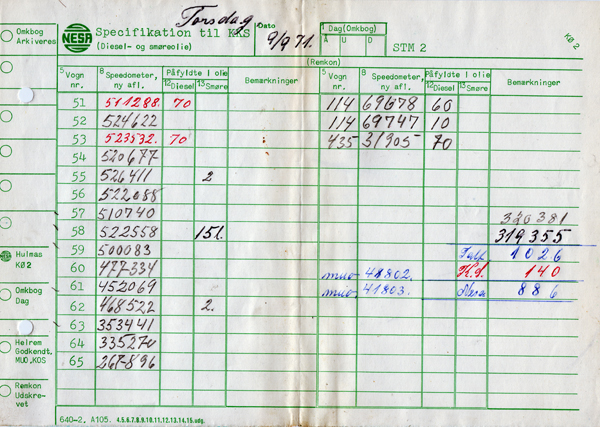 Torsdag
Omkbog Arkiveres
NESA
Specifikation til KKS
(Diesel- og smøreolie)
Dato
9/9 71.
1 Dag (Omkbog)
A U D
STM 2
KØ 2
(Remkon)
5 Vogn nr. 8 Speedometer, ny afl. Påfyldte l olie 12 Diesel 13 Smøre Bemærkninger 5 Vogn nr. 8 Speedometer, ny afl. Påfyldte l olie 12 Diesel 13 Smøre Bemærkninger
51 511288. 70 114 69678 60
52 524622 114 69747 10
53 523532. 70 435 31905 70
54 520677
55 526411 2
56 522088
57 510740 320381
58 522558 15l. 319355
59 500083 1026
60 477334 48802. 140
61 452069 41803. 886
62 468522 2.
63 353441
64 335270
65 267896
Hulmas KØ2
Omkbog Dag
Helrem Godkendt, MUO, KOS
Remkon Udskrevet
640-2. A105. 4.5.6.7.8.9.10.11.12.13.14.15.udg.